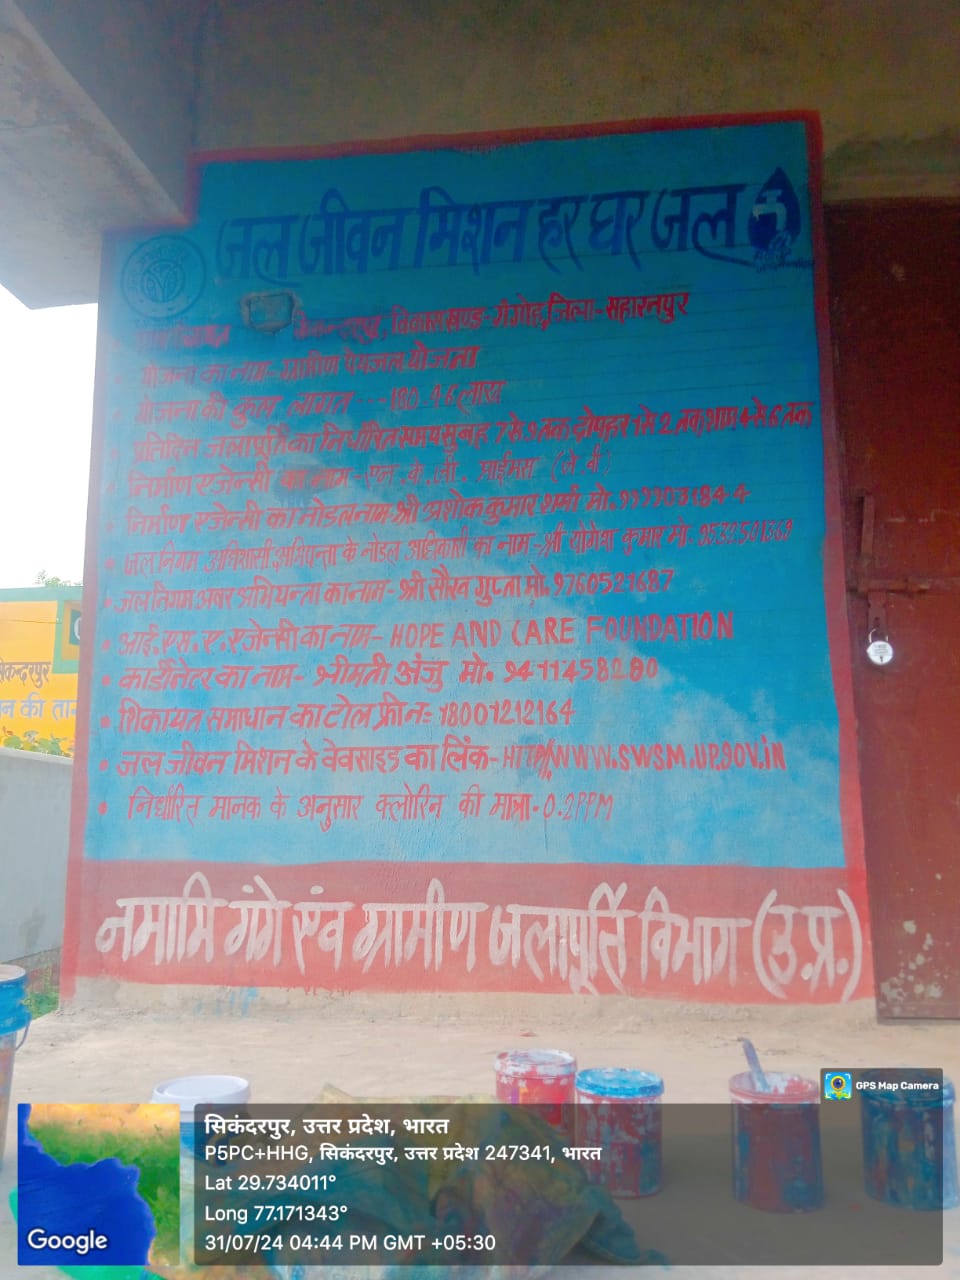 जल जीवन मिशन हर घर जल
विकास खण्ड-गंगोह, जिला-सहारनपुर
योजना का नाम-ग्रामिण पेयजल योजना
योजना की कुल लागत ---180.46 लाख
प्रतिदिन जलापूर्ति का निर्धारित समय सुबह 7 से 9 तक दोपहर 1 से 2 तक शाम 4 से 6 तक
निर्माण एजेन्सी का नाम-एन. के. जी. प्राईमस (जे.वी)
निर्माण एजेन्सी का नोडल नाम-श्री अशोक कुमार शर्मा मो.
जल निगम अधिशासी अभियन्ता के नोडल अधिकारी का नाम-श्री योगेश कुमार मो.
जल निगम अवर अभियन्ता का नाम-श्री सौरव गुप्ता मो. 9760521687
आई.एस.ए.एजेन्सी का नाम- HOPE AND CARE FOUNDATION
कार्डीनेटर का नाम- श्रीमती अंजु मो. 9411458280
शिकायत समाधान का टोल फ्री न॰ 18001212164
जल जीवन मिशन के वेवसाइड का लिंक-HTTP//WWW.SWSM.UP.GOV.in
निर्धारित मानक के अनुसार क्लोरिन की मात्रा-0.2PPM
नमामि गंगे एंव ग्रामीण जलापूर्ति विभाग (उ.प्र.)
सिकन्दरपुर
GPS Map Camera
सिकंदरपुर, उत्तर प्रदेश, भारत
P5PC+HHG, सिकंदरपुर, उत्तर प्रदेश 247341, भारत
Lat 29.734011°
Long 77.171343°
31/07/24 04:44 PM GMT +05:30
Google